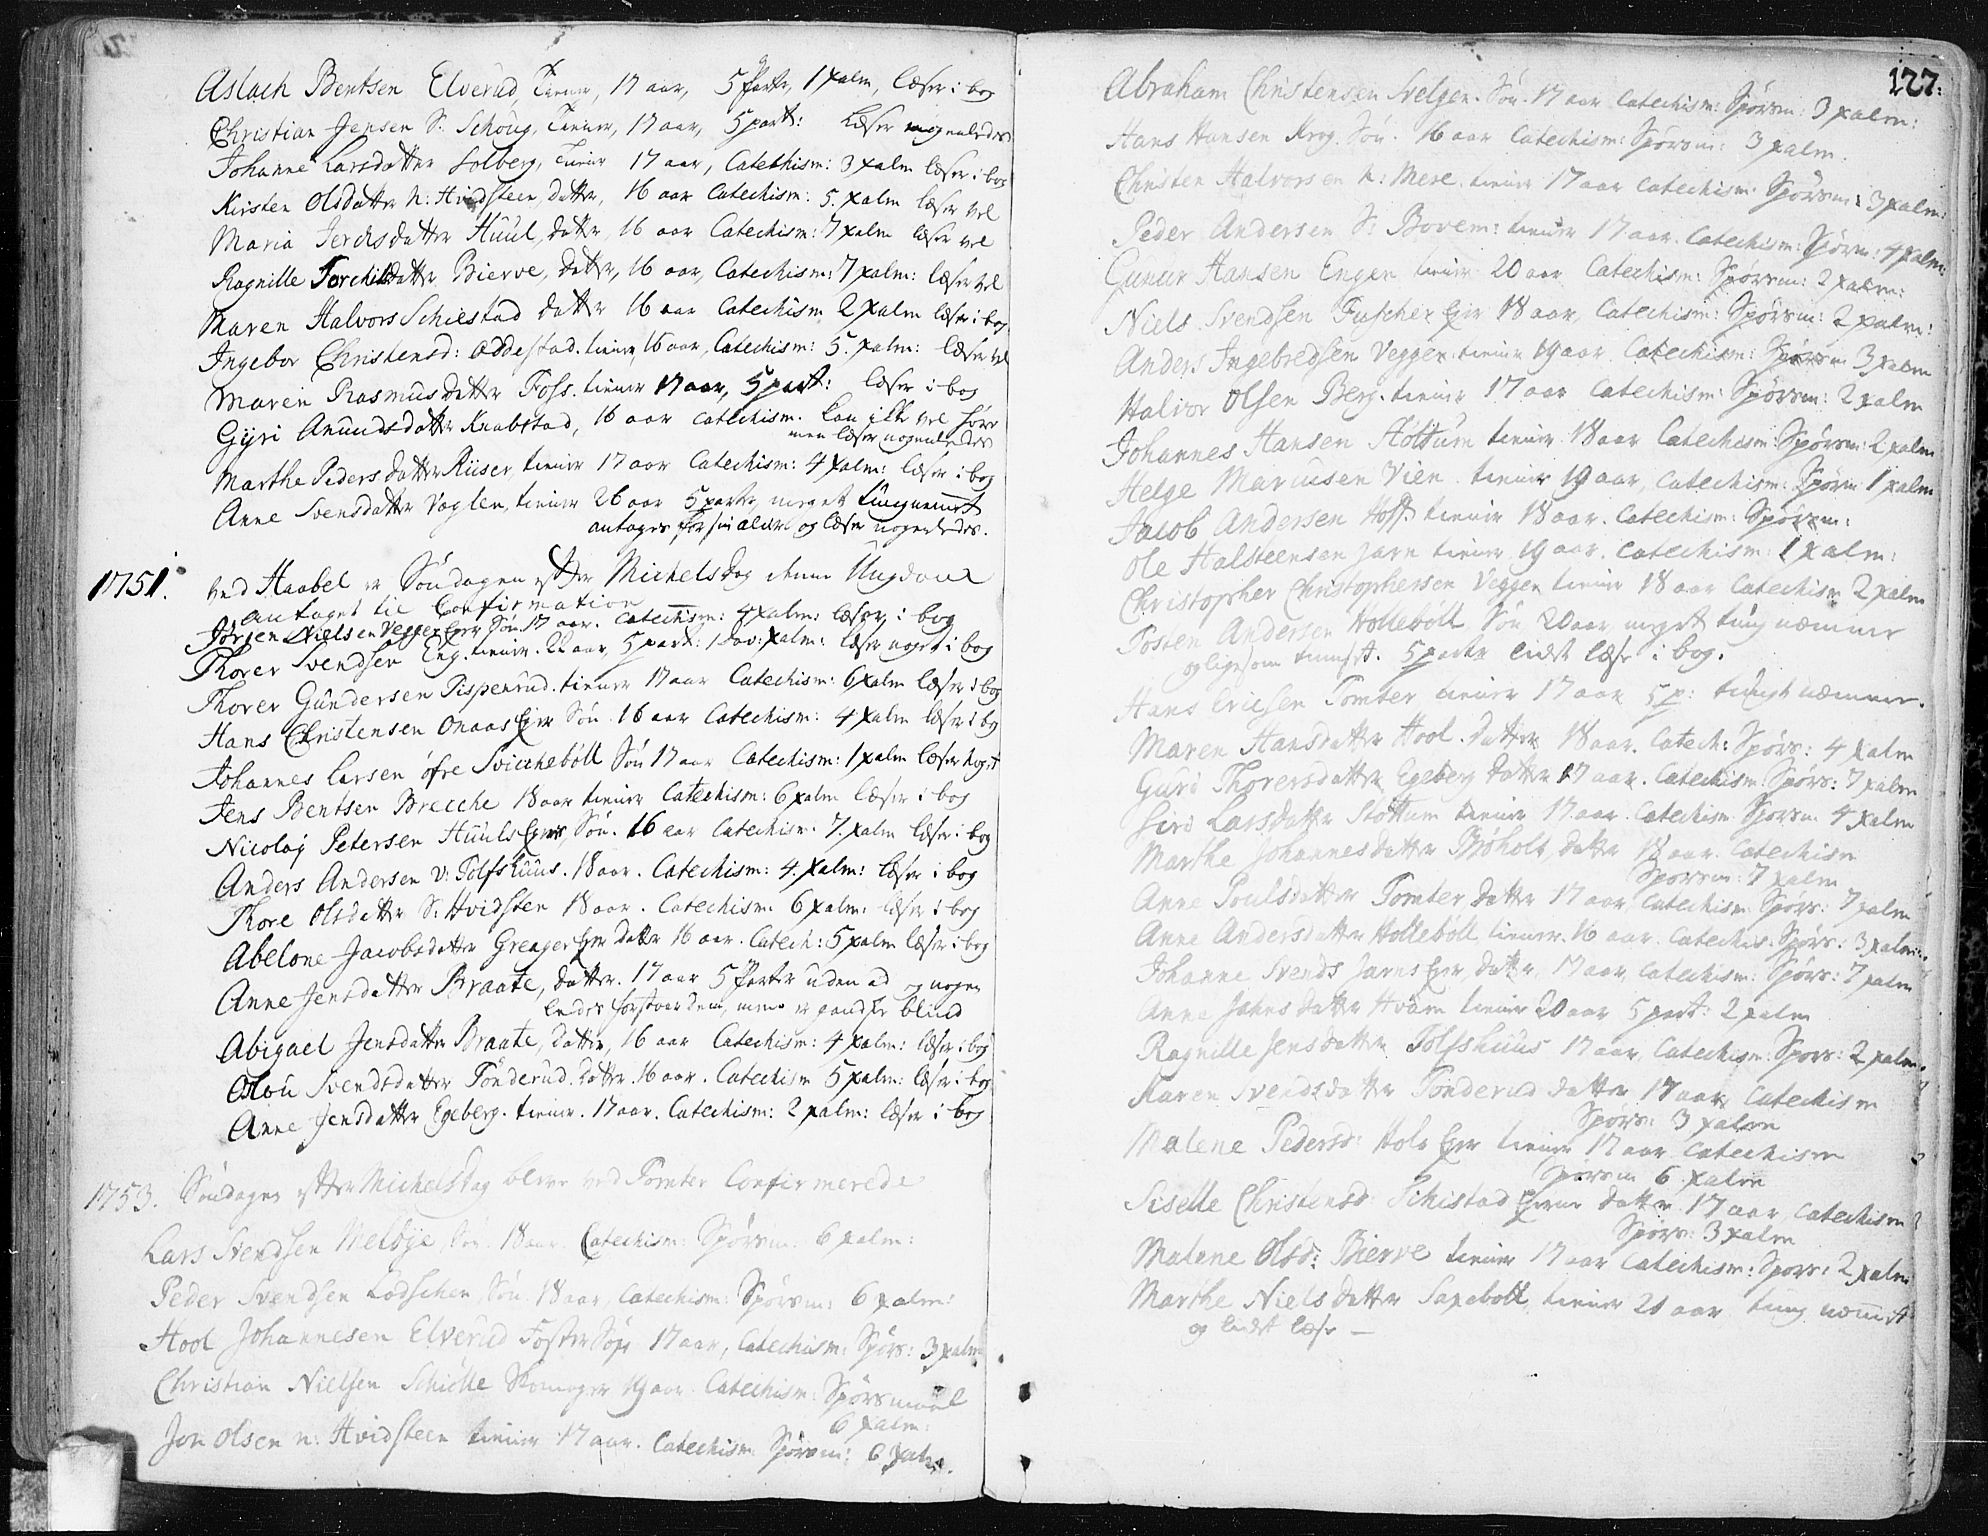 Aslach Bentsen Elverud, Tiener, 17 aar, 5 Parter, 1 psalm, læser i bog
Christian Jensen S: Schoug, Tiener, 17 aar, 5 part: læser nogenledes
Johanne Larsdatter Solberg, Tiener 17 aar, Catethism: 3 psalm læser i bog
Kirsten Olsdatter N: Hvidsteen, datter, 16 aar Catechism: 5. psalm læser vel
Maria Jerchsdatter Huul, datter, 16 aar Catechism: 7 psalm læser vel
Ragnille Torchildsdatter Bierve, datter, 16 aar, Catechism: 7 psalm: læser vel
Maren Halvors Schiestad datter 16 aar Catechism 2 psalm læser i bog
Ingebor Christensd: Oddestad. tiener 16 aar, Catechism: 5. psalm: læser vel
Maren Rasmusdatter Foss. tiener 17 aar, 5 part: læser i bog
Gyri Amundsdatter Knabstad, 16 aar catechism. kan ikke vel høre
men læser nogenledes
Marthe Pedersdatter Riiser, tiener 17 aar Catechism: 4 psalm: læser i bog
Anne Svensdatter Voglen, tiener 26 aar 5 parter, meget tungnemmet
antages for sin alder og læser nogenledes.
1751. ved Haabel er Søndagen efter Michelsdag denne Ungdom
antaget til Confirmation
Jørgen Nielsen Veggen Eyer Søn 17 aar. Catechism: 4 psalm: læser i bog
Thorer Svendsen Eng. tiener. 22 aar, 5 part: 1 Dav: psalm: læser noget i bog
Thorer Gundersen Pispenrud. tiener 17 aar Catechism: 6 psalm læser i bog
Hans Christensen Onaas Ejer Søn 16 aar Catechism: 4 psalm læser i bog
Johannes Larsen øfre Svicchebøll Søn 17 aar Catechism: 1 psalm læser noget
Jens Bentsen Brecche 18 aar tiener Catechism: 6 psalm læser i bog
Nicolaj Petersen Huuls Eyer, Søn. 16 aar Catechism: 7. psalm læser i bog
Anders Andersen v: Tolfshuus. 18 aar. Catechism: 4. psalm: læser i bog
Thore Olsdatter S: Hvidsten 18 aar. Catechism: 6 psalm: læser i bog
Abelone Jacobsdatter Greager Eyer datter 16 aar. Catech: 5 psalm læser i bog
Anne Jensdatter Braate, datter. 17 aar 5 Parter uden ad og nogen
ledes forstaar dem, men er gandske blind
Abigael Jensdatter Braate, datter, 16 aar Catechism: 4 psalm: læser i bog
Olou Svendsdatter Tønderud. datter. 16 aar. Catechism 5 psalm: læser i bog
Anne Jensdatter Egeberg. tiener. 17 aar. Catechism: 2 psalm: læser i bog
1753. Søndagen efter Michelsdag bleve ved Tomter Confirmerede
Lars Svendsen Melbye, Søn 18 aar. Catechism: Spørsm: 6 psalm:
Peder Svendsen Lodschen Søn 18 aar, Catechism: Spørsm: 6 psalm:
Hool Johannesen Elverud Foster Søn 17 aar, Catechism: Spørs: 3 psalm
Christian Nielsen Schiølle Skomager 19 aar. Catechism: Spørsmaal
6 psalm:
Jon Olsen n: Hvidsteen tiener 17 aar. Catechism Spørsm: 6 psalm.
127:
Abraham Christensen Svelgen. Søn 17 aar Catechism: Spørsm: 3 psalm:
Hans Hansen Krog. Søn. 16 aar Catechism: Spørsm: 3 psalm.
Christen Halvorsen n: Mere. tiener 17 aar Catechism: Spørsm: 3 psalm:
Peder Andersen S: Bovem: tiener 17 aar. Catechism: Spørsm: 4 psalm:
Guner Hansen Engen tiener 20 aar Catechism: Spørsm: 2 psalm:
Niels Svendsen Fuscher Eier 18 aar, Catechism: Spørsm: 2 psalm:
Anders Ingebredsen Veggen tiener 19 aar. Catechism: Spørsm 3 psalm
Halvor Olsen Berg. tiener 17 aar Catechism: Spørsm: 2 psalm
Johannes Hansen Støttum tiener 18 aar Catechism: Spørsm: 2 psalm
Helge Marcusen Vien. tiener 19 aar, Catechism: Spørsm 1 psalm
Jacob Andersen Hoff. tiener 18 aar. Catechism: Spørsm:
Ole Halsteensen Jarn tiener 19 aar. Catechism: 1 psalm:
Christopher Christophersen Veggen tiener 18 aar Catechism 2 psalm
Tosten Andersen Hollebøll Søn 20 aar meget tung næmmer
og ligesom tumset. 5 parter lidt læse i bog.
Hans Ericsen Tomter tiener 17 aar 5 p: tungt næmmer.
Maren Hansdatter Hool. datter 18 aar. Catech: Spørs: 4 psalm
Guri Thorersdatter Egeberg datter 17 aar. Catechism Spørs: 7 psalm
Siri Larsdatter Støttum tiener 17 aar. Catechism Spørsm 4 psalm
Marthe Johannesdatter Brøholt datter 18 aar. Catechism
Spørsm: 7 psalm
Anne Poulsdatter Tomter datter 17 aar, Catechism Spørs: 7 psalm
Anne Andersdatter Hollebøll tiener. 16 aar. Catechis: Spørs: 3 psalm:
Johanne Svends Jarns Eyer, datter, 17 aar, Catechism: Spørs: 7 psalm
Anne Jahnsdatter Hvam tiener 20 aar 5 part: 2 psalm
Ragnille Jensdatter Tolfshuus 17 aar, Catechism: Spørs: 2 psalm.
Karen Svendsdatter Tønderud datter 17 aar, Catechism
Spørs: 3 psalm
Malene Pedersd: Hole Eyer tiener 17 aar Catechism
Spørsm 6 psalm
Siselle Christensd: Schistad Eyerne datter 17 aar, Catechism
Spørs: 3 psalm
Malene Olsd: Bierve tiener 17 aar Catechism: Spørs: 2 psalm
Marthe Nielsdatter Saxebøll, tiener 21 aar tung næmmet
og lidt læse —